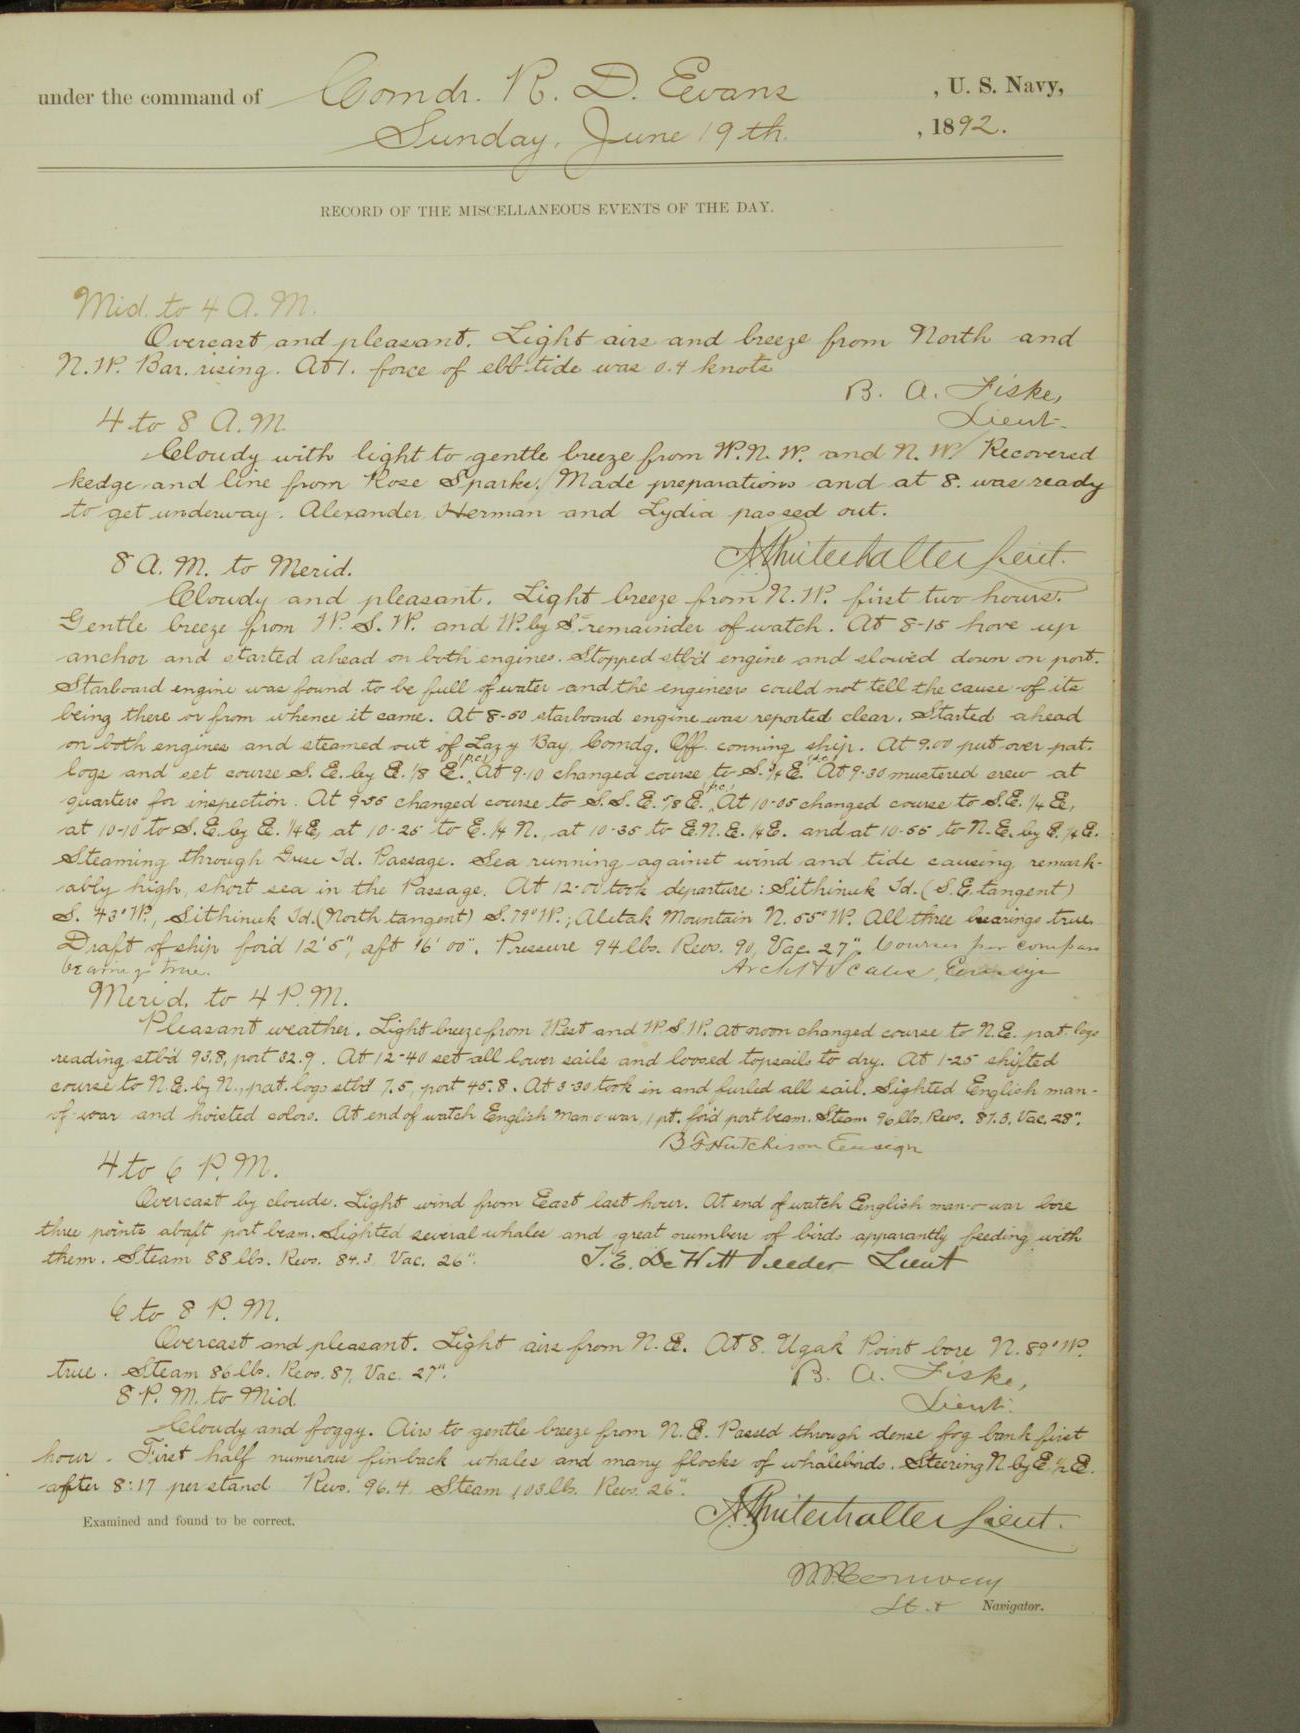 under the command of Comdr. R. D. Evans, U. S. Navy,
Sunday, June 19th, 1892.
RECORD OF THE MISCELLANEOUS EVENTS OF THE DAY.
Mid. to 4 A.M.
Overcast and pleasant. Light airs and breeze from North and
N.W. Bar. rising. At 1. force of ebb-tide was 0.4 knots
B. A. Fiske,
Lieut.
4 to 8 A.M.
Cloudy with light to gentle breeze from W.N.W. and N.W. Recovered
kedge and line from Rose Sparks. Made preparations and at 8. was ready
to get underway. Alexander, Herman and Lydia passed out.
Lieut.
8 A.M. to Merid.
Cloudy and pleasant. Light breeze from N.W. first two hours.
Gentle breeze from W.S.W. and W. by S. remainder of watch. At 8-15 hove up
anchor and started ahead on both engines. Stopped stb'd engine and slowed down on port.
Starboard engine was found to be full of water and the engineers could not tell the cause of its
being there or from whence it came. At 8-50 starboard engine was reported clear. Started ahead
on both engines and steamed out of Lazy Bay, Comdg. Off. conning ship. At 9.00 put over pat.
logs and set course S.E. by E. 1/8 E. (p.c.) At 9-10 changed course to S. 3/4 E. (p.c.) At 9-30 mustered crew at
quarters for inspection. At 9-55 changed course to S.S.E. 7/8 E. (p.c.) At 10-05 changed course to S.E. 1/4 E,
at 10-10 to S.E. by E. 1/4 E, at 10-25 to E. 1/4 N., at 10-35 to E.N.E. 1/4 E. and at 10-55 to N.E. by E. 1/4 E.
Steaming through Id. Passage. Sea running against wind and tide causing remark-
ably high, short sea in the Passage. At 12-00 took departure: Sithinuk Id. (S.E. tangent)
S. 43° W., Sithinuk Id. (North tangent) S. 79° W.; Alitak Mountain N. 55° W. All three bearings true.
Draft of ship for'd 12' 5", aft 16' 00". Pressure 94 lbs. Revs. 90, Vac. 27". Courses per compass
bearings true. Arch H Scales, Ensign
Merid. to 4 P.M.
Pleasant weather. Light breeze from West and W.S.W. At noon changed course to N.E. pat. logs
reading stb'd 93.8, port 32.9. At 12-40 set all lower sails and loosed topsails to dry. At 1-25 shifted
course to N.E. by N., pat. logs stb'd 7.5, port 45.8. At 3-30 took in and furled all sail. Sighted English man-
of-war and hoisted colors. At end of watch English man-o-war, 1 pt. for'd port beam. Steam 96 lbs. Revs. 87.3. Vac. 28".
B F Hutchison Ensign
4 to 6 P.M.
Overcast by clouds. Light wind from East last hour. At end of watch English man-o-war bore
three points abaft port beam. Sighted several whales and great numbers of birds apparantly feeding with
them. Steam 88 lbs. Revs. 84.3 Vac. 26". T. E. DeWitt Veeder Lieut
6 to 8 P.M.
Overcast and pleasant. Light airs from N.E. At 8. Ugak Point bore N. 89° W.
true. Steam 86 lbs. Revs. 87. Vac. 27". B. A. Fiske,
8 P.M. to Mid. Lieut.
Cloudy and foggy. Airs to gentle breeze from N.E. Passed through dense fog bank first
hour. First half numerous fin-back whales and many flocks of whalebirds. Steering N. by E. 1/2 E.
after 8:17 per stand Revs. 96.4. Steam 103 lb. Revs. 26".
Examined and found to be correct. Lieut.
Lt. Navigator.